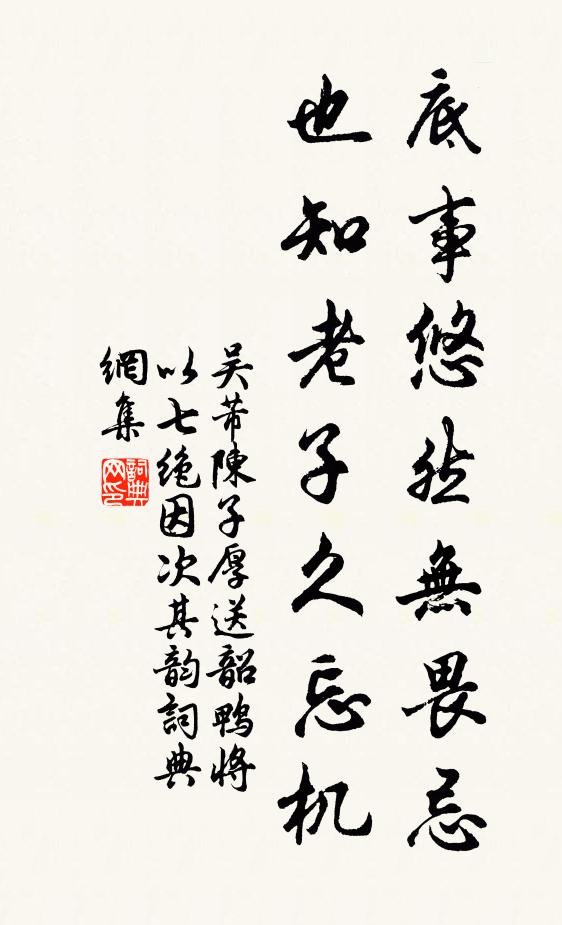 底事悠然無畏忌
也知老子久忘机
吴芾陳子厚送韶鴨將
以七绝因次其韵詞典
網集
詞典
网印